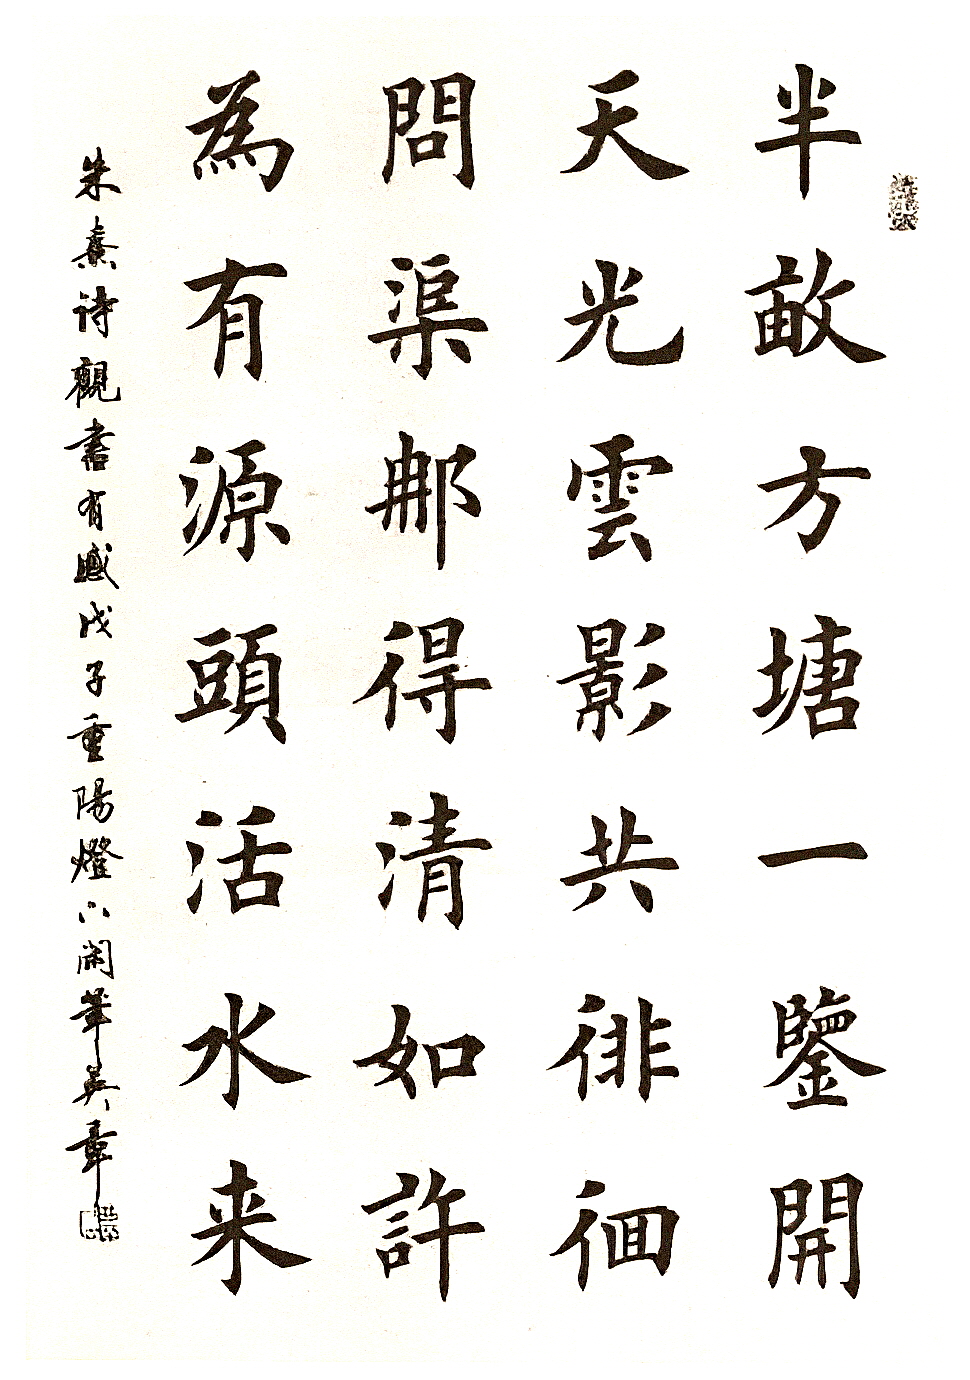 半畝方塘一鑒開
天光雲影共徘徊
問渠那得清如許
為有源頭活水来
朱熹诗觀書有感戊子重陽燈下開筆吳章